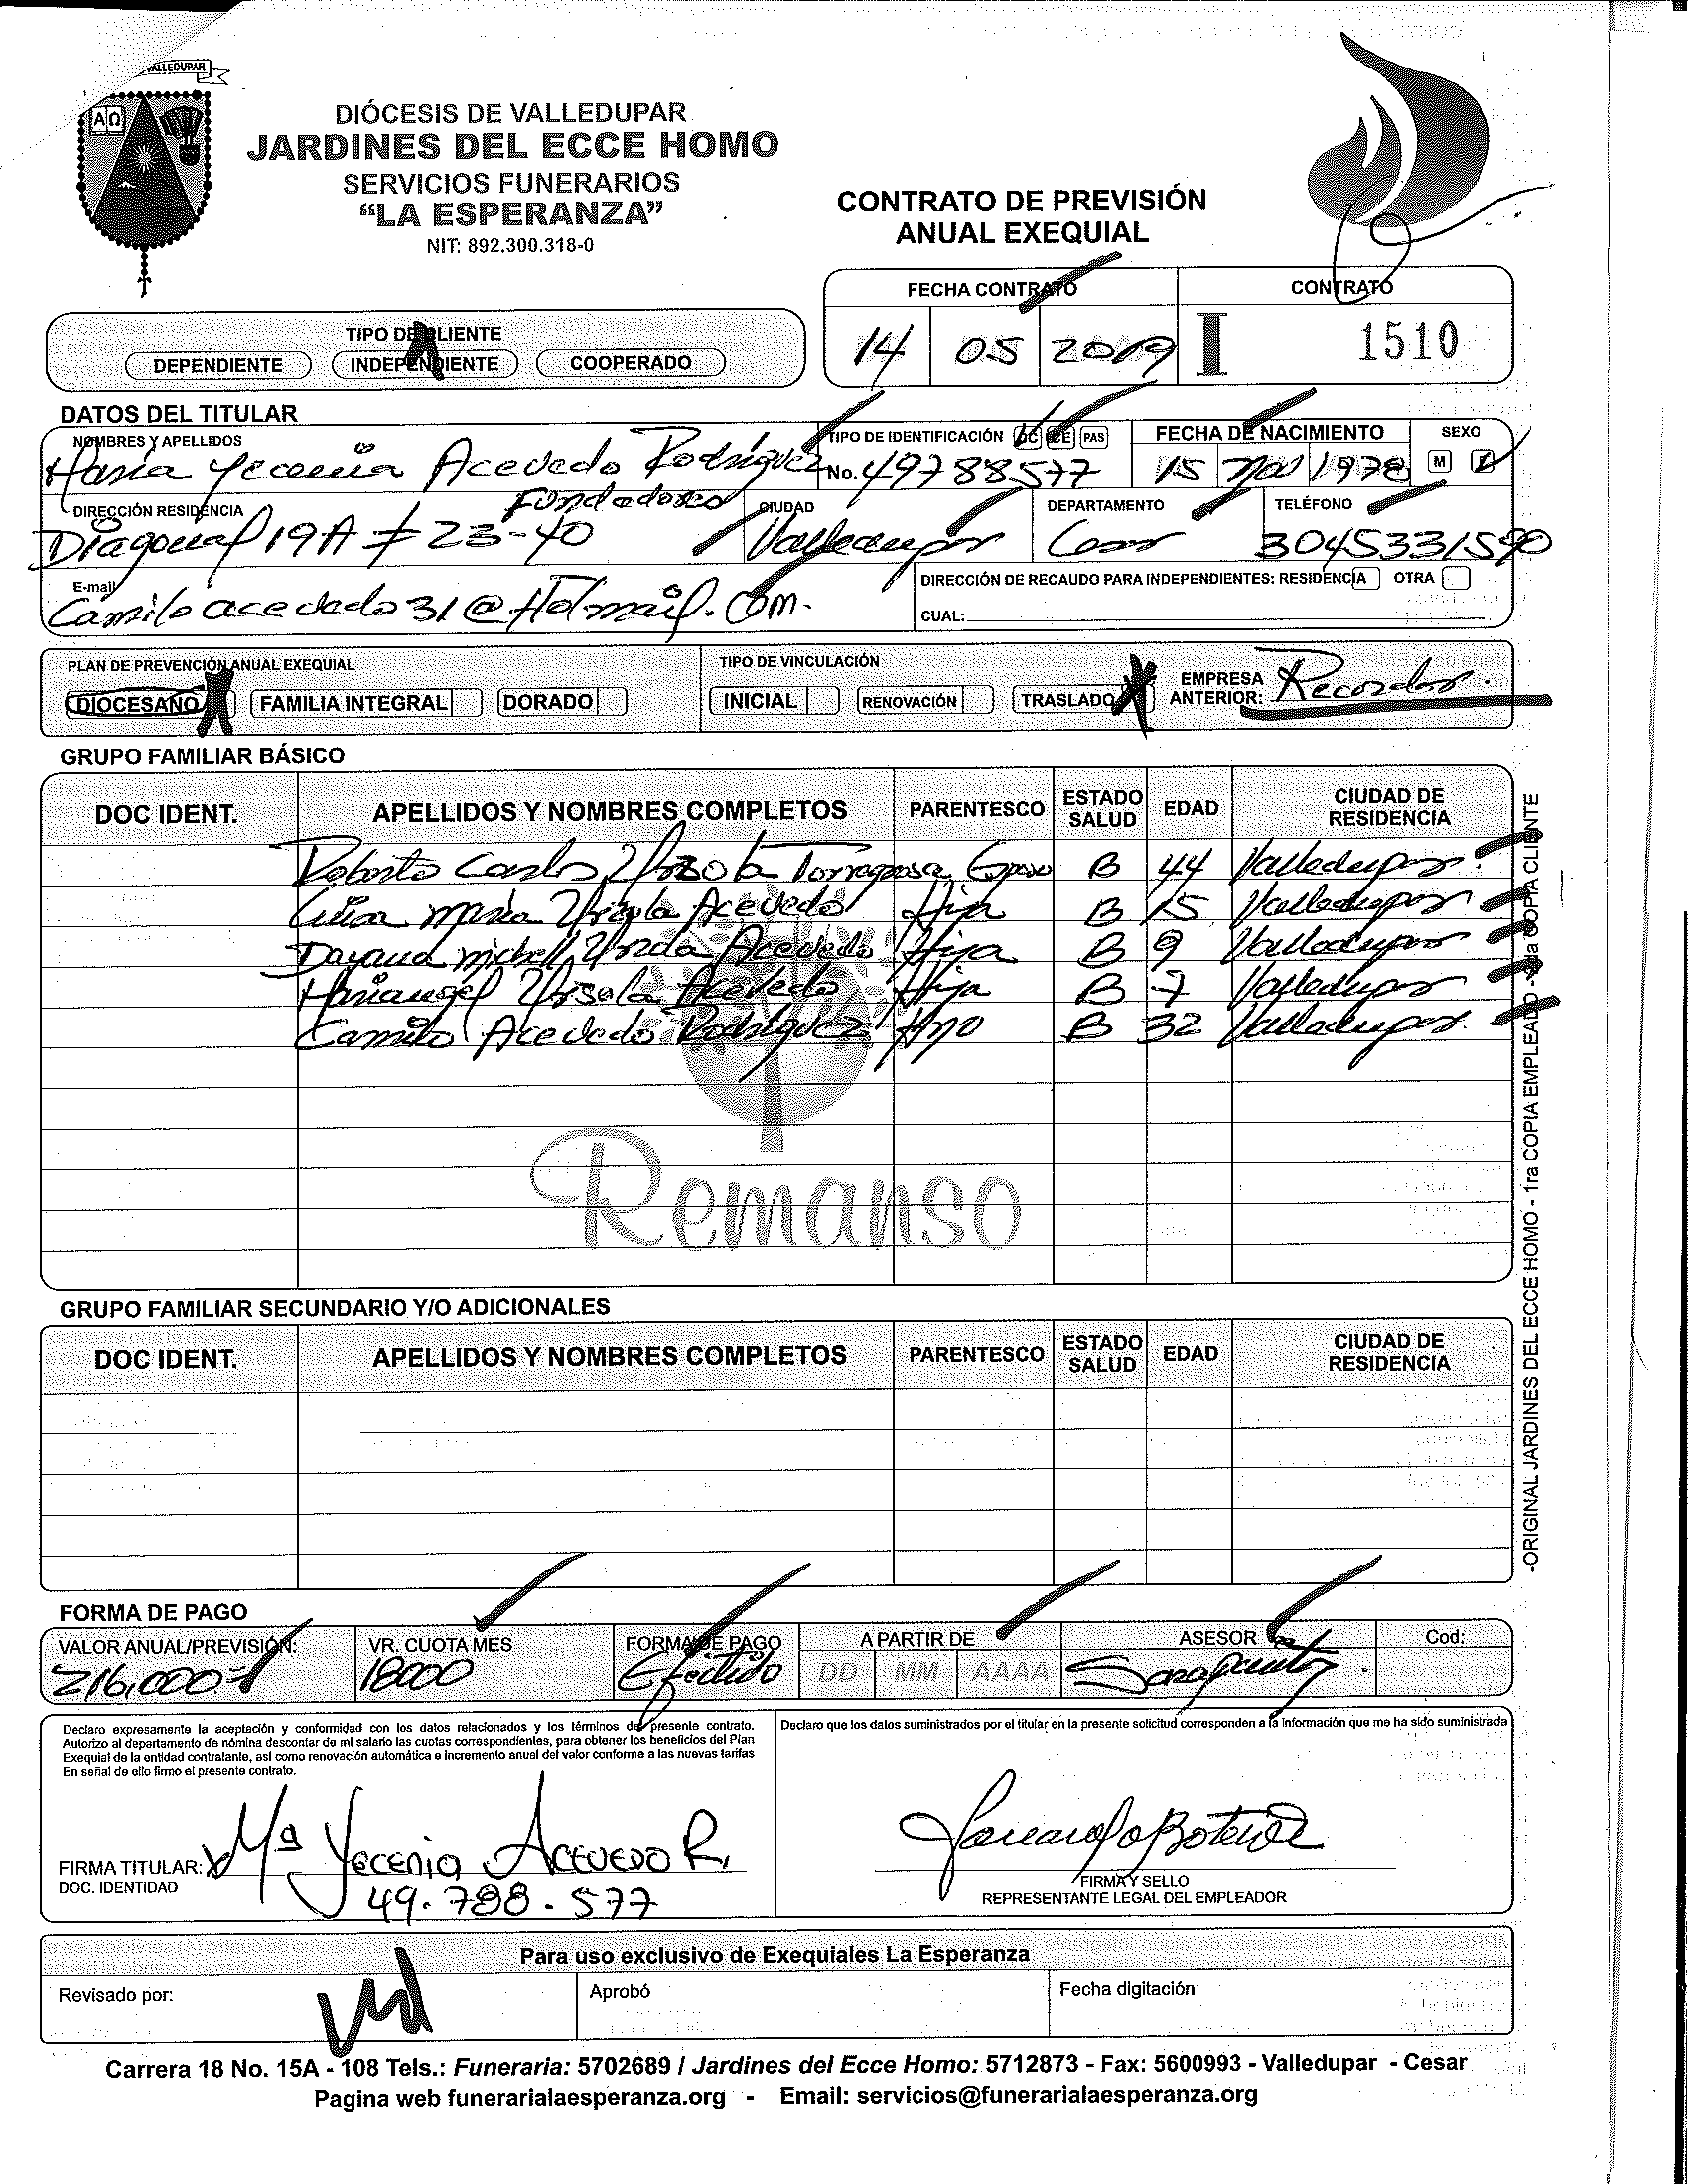 VALLEDUPAR
Α Ω
DIÓCESIS DE VALLEDUPAR
JARDINES DEL ECCE HOMO
SERVICIOS FUNERARIOS
“LA ESPERANZA”
NIT: 892.300.318-0
CONTRATO DE PREVISIÓN
ANUAL EXEQUIAL
FECHA CONTRATO CONTRATO
14 05 2019 I 1510
TIPO DE CLIENTE
DEPENDIENTE INDEPENDIENTE COOPERADO
DATOS DEL TITULAR
NOMBRES Y APELLIDOS TIPO DE IDENTIFICACIÓN CC CE PAS FECHA DE NACIMIENTO SEXO
Maria Yecenia Acevedo Rodriguez No. 49788577 15 Nov 1978 M F
DIRECCIÓN RESIDENCIA Fundadores CIUDAD DEPARTAMENTO TELÉFONO
Diagonal 19A # 23-40 Valledupar Cesar 3045331590
E-mail DIRECCIÓN DE RECAUDO PARA INDEPENDIENTES: RESIDENCIA OTRA
Camilo acevedo31@Hotmail.com.
CUAL:
PLAN DE PREVENCIÓN ANUAL EXEQUIAL TIPO DE VINCULACIÓN
DIOCESANO X FAMILIA INTEGRAL DORADO INICIAL RENOVACIÓN TRASLADO X EMPRESA ANTERIOR: Recordar.
GRUPO FAMILIAR BÁSICO
DOC IDENT. APELLIDOS Y NOMBRES COMPLETOS PARENTESCO ESTADO SALUD EDAD CIUDAD DE RESIDENCIA
Roberto Carlos Urzola Torregrosa Esposo B 44 Valledupar.
Maria Urzola Acevedo Hija B 15 Valledupar
Dayana michell Urzola Acevedo Hija B 9 Valledupar
Mariangel Ursola Acevedo Hija B 7 Valledupar
Camilo Acevedo Rodriguez Hno B 32 Valledupar.
Remanso
GRUPO FAMILIAR SECUNDARIO Y/O ADICIONALES
DOC IDENT. APELLIDOS Y NOMBRES COMPLETOS PARENTESCO ESTADO SALUD EDAD CIUDAD DE RESIDENCIA
-ORIGINAL JARDINES DEL ECCE HOMO - 1ra COPIA EMPLEADO - 2da COPIA CLIENTE
FORMA DE PAGO
VALOR ANUAL/PREVISIÓN: VR. CUOTA MES FORMA DE PAGO A PARTIR DE ASESOR Cod:
216,000 18000 Efectivo DD MM AAAA
Declaro expresamente la aceptación y conformidad con los datos relacionados y los términos del presente contrato.
Autorizo al departamento de nómina descontar de mi salario las cuotas correspondientes, para obtener los beneficios del Plan
Exequial de la entidad contratante, así como renovación automática e incremento anual del valor conforme a las nuevas tarifas
En señal de ello firmo el presente contrato.
Declaro que los datos suministrados por el titular en la presente solicitud corresponden a la información que me ha sido suministrada
FIRMA TITULAR: Mª Yecenia Acevedo R.
DOC. IDENTIDAD 49.788.577
FIRMA Y SELLO
REPRESENTANTE LEGAL DEL EMPLEADOR
Para uso exclusivo de Exequiales La Esperanza
Revisado por: Aprobó Fecha digitación
Carrera 18 No. 15A - 108 Tels.: Funeraria: 5702689 / Jardines del Ecce Homo: 5712873 - Fax: 5600993 - Valledupar - Cesar
Pagina web funerarialaesperanza.org - Email: servicios@funerarialaesperanza.org